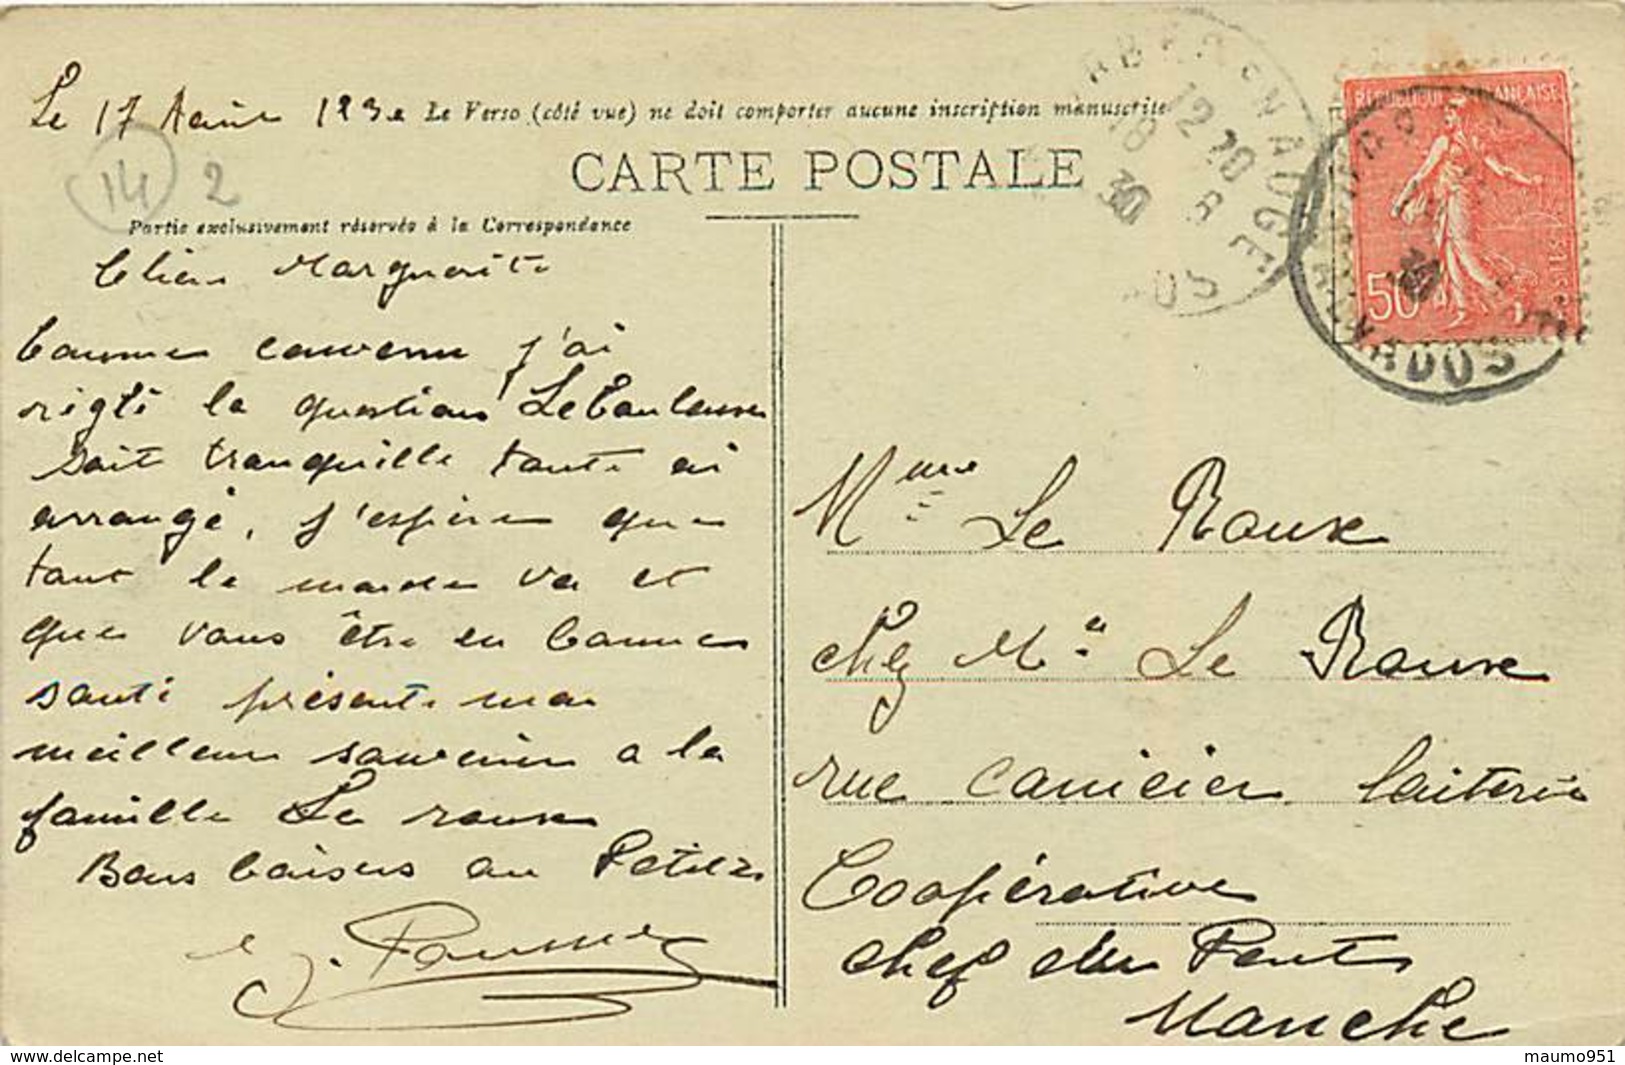 Le 17 Aout 1930 Le Verso (côté vue) ne doit comporter aucune inscription manuscrite
CARTE POSTALE
14 2
Partie exclusivement réservée à la Correspondance
RÉPUBLIQUE FRANÇAISE
50
POSTES
18 12 20
30 8
Chère Marguerite
Comme convenu j'ai
réglé la question Le Toulouse
soit tranquille tante ai
arrangé, j'espère que
tout le monde va et
que vous être en bonne
santé présente mon
meilleur souvenir a la
famille Le roux
Bons baisers au Petites
Mme Le Roux
chez Mr Le Roux
rue Canicier laiterie
Coopérative
chef du Pont
Manche
maumo951